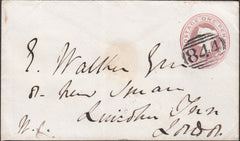 POSTAGE ONE PENNY
844
E. Walker Esq
8 New Square
Lincolns Inn
London
W.C.